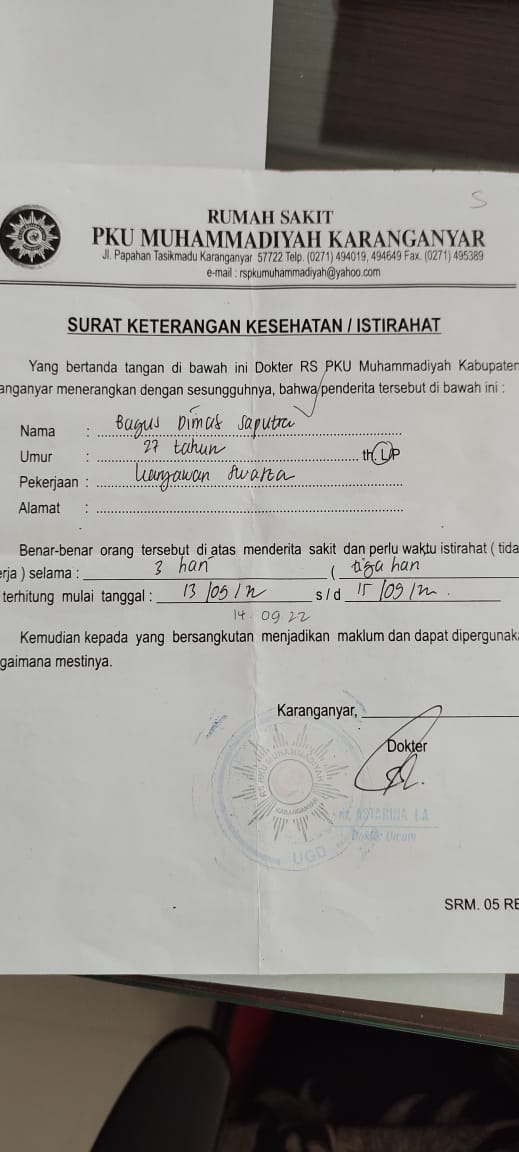 S
RUMAH SAKIT
PKU MUHAMMADIYAH KARANGANYAR
Jl. Papahan Tasikmadu Karanganyar 57722 Telp. (0271) 494019, 494649 Fax. (0271) 495389
e-mail : rspkumuhammadiyah@yahoo.com
SURAT KETERANGAN KESEHATAN / ISTIRAHAT
Yang bertanda tangan di bawah ini Dokter RS PKU Muhammadiyah Kabupaten
anganyar menerangkan dengan sesungguhnya, bahwa penderita tersebut di bawah ini :
Nama : Bagus Dimas Saputra
Umur : 27 tahun th L/P
Pekerjaan : Karyawan Swasta
Alamat :
Benar-benar orang tersebut di atas menderita sakit dan perlu waktu istirahat ( tida
erja ) selama : 3 hari ( tiga hari
terhitung mulai tanggal : 13/09/22 s/d 15/09/22.
14 09 22
Kemudian kepada yang bersangkutan menjadikan maklum dan dapat dipergunaka
gaimana mestinya.
Karanganyar,
Dokter
RS PKU MUHAMMADIYAH
KARANGANYAR
UGD
ASTARINA I.A
Dokter Umum
SRM. 05 RE